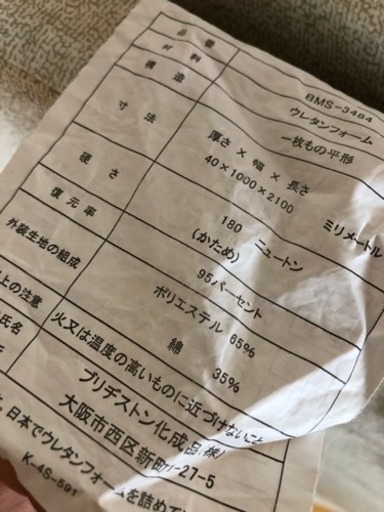 品番 BMS-3484
材料 ウレタンフォーム
構造 一枚もの平形
寸法 厚さ×幅×長さ ミリメートル
40×1000×2100
硬さ 180 ニュートン
(かため)
復元率 95パーセント
外装生地の組成 ポリエステル 65%
綿 35%
上の注意 火又は温度の高いものに近づけないこと
氏名 ブリヂストン化成品(株)
大阪市西区新町 -27-5
日本でウレタンフォームを詰めて
K-4S-591